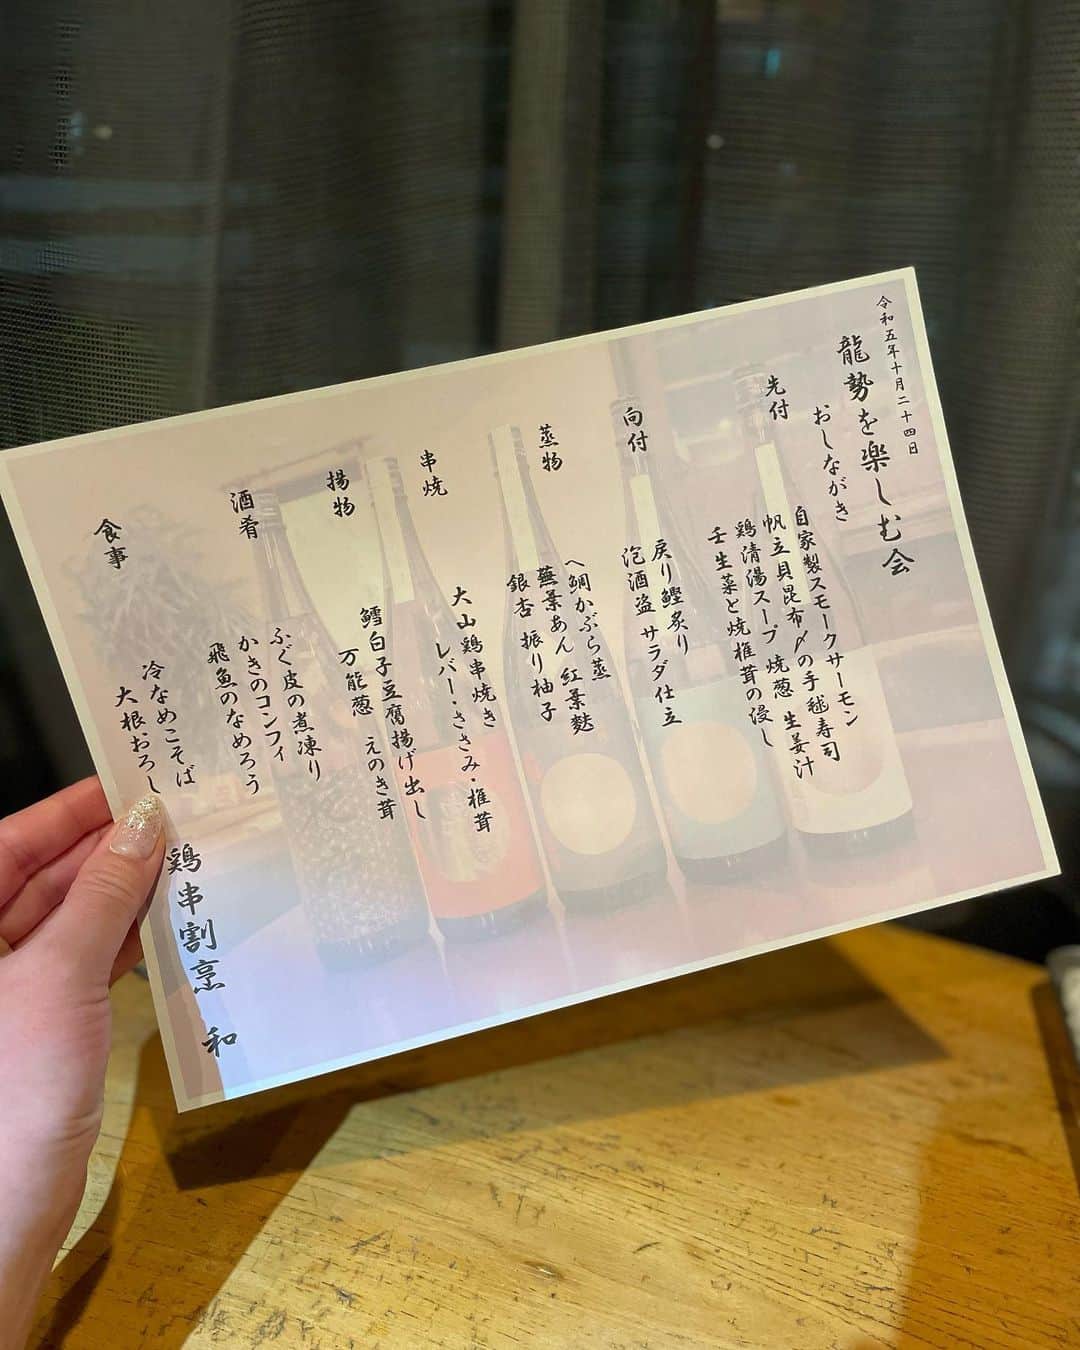 令和五年十月二十四日
龍勢を楽しむ会
おしながき
先付
自家製スモークサーモン
帆立貝昆布〆の手毬寿司
鶏清湯スープ 焼葱 生姜汁
壬生菜と焼椎茸の浸し
向付
戻り鰹炙り
泡酒盗 サラダ仕立
蒸物
甘鯛かぶら蒸
蕪葉あん 紅葉麩
銀杏 振り柚子
串焼
大山鶏串焼き
レバー・ささみ・椎茸
揚物
鱈白子豆腐揚げ出し
万能葱 えのき茸
酒肴
ふぐ皮の煮凍り
かきのコンフィ
飛魚のなめろう
食事
冷なめこそば
大根おろし
鶏串割烹 和